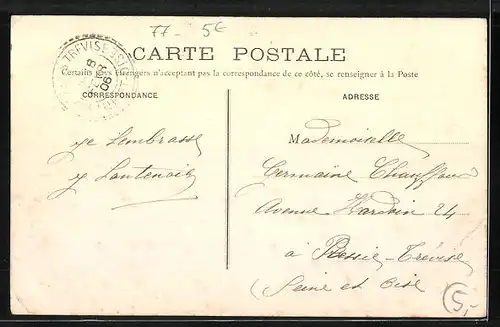 77- 5€
CARTE POSTALE
Certains pays étrangers n'acceptant pas la correspondance de ce côté, se renseigner à la Poste
CORRESPONDANCE
ADRESSE
TREVISE
06
je t'embrasse
Mademoiselle
Germaine Chauffour
Avenue Hardoin 24
à Plessis-Trévise
(Seine et Oise
5,-